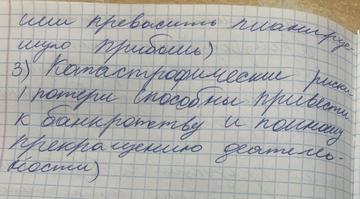 или превысить планируе
мую прибыль)
3) Катастрофические риски
(потери способны привести
к банкротству и полному
прекращению деятель-
ности)